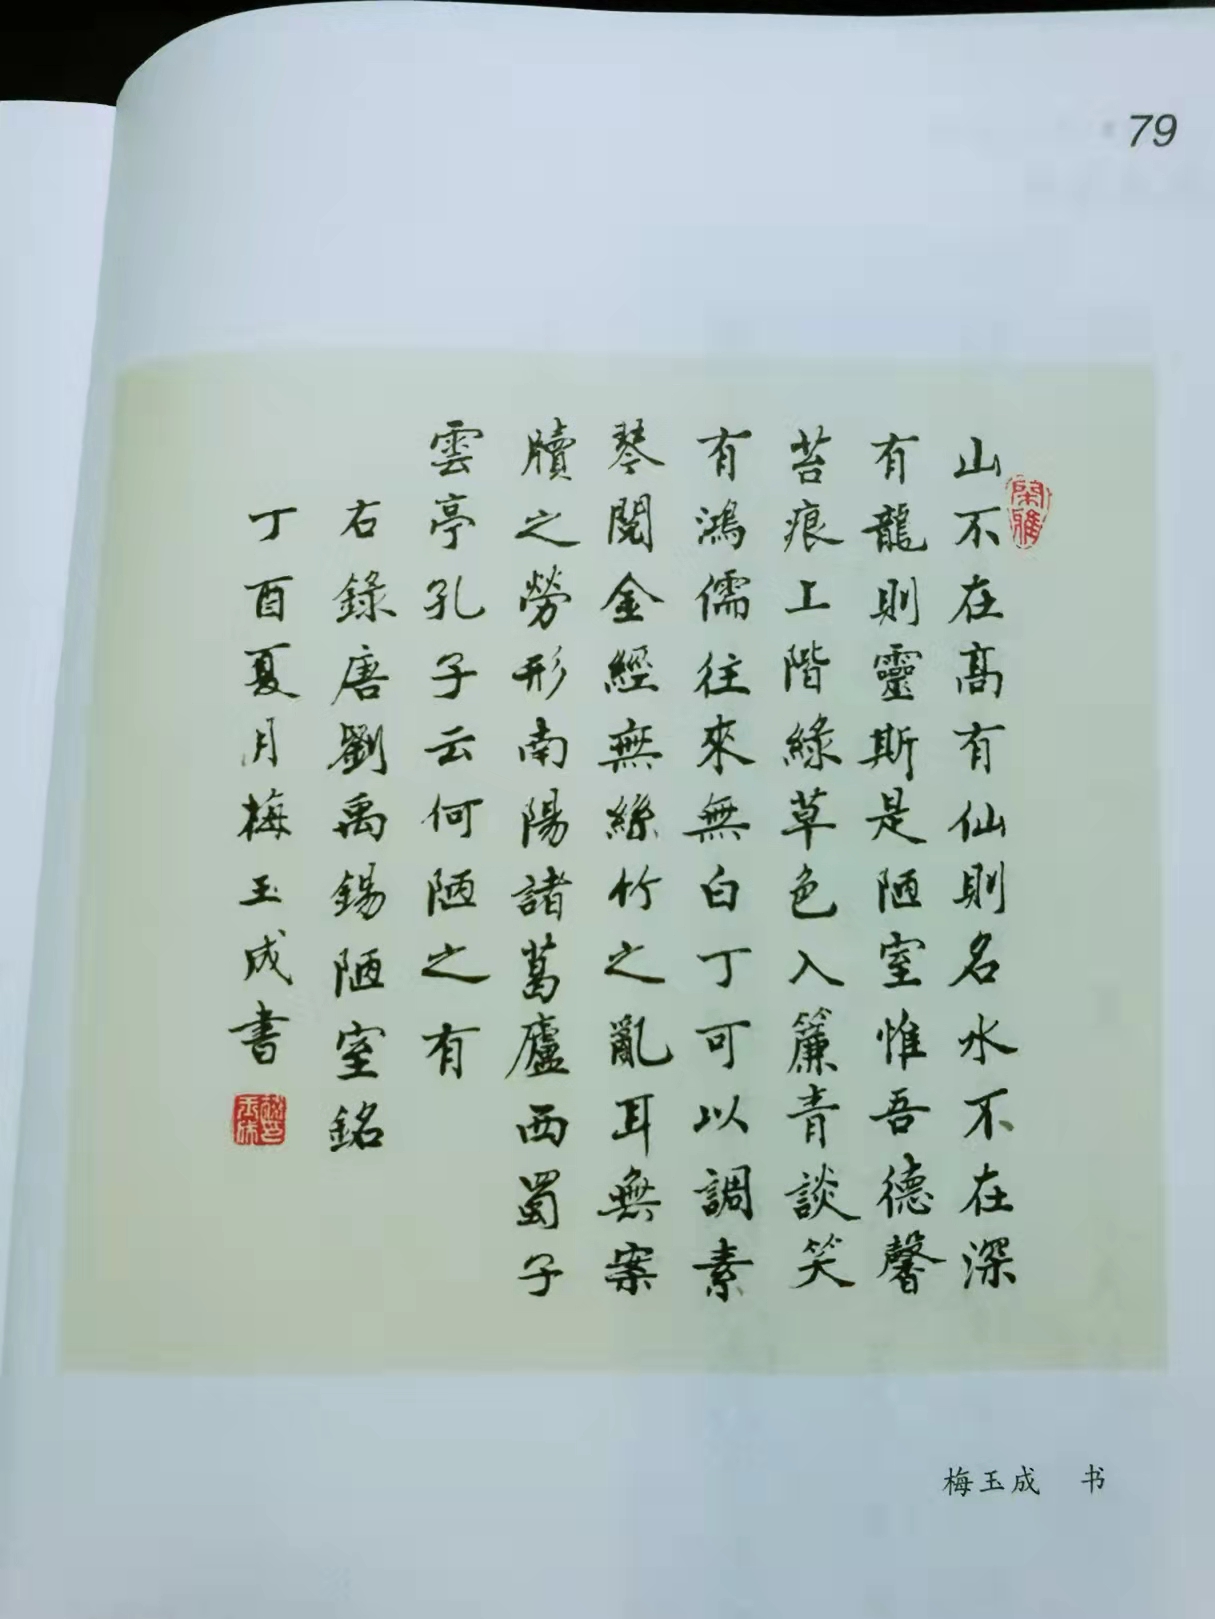 79
山不在高有仙則名水不在深
有龍則靈斯是陋室惟吾德馨
苔痕上階綠草色入簾青談笑
有鴻儒往來無白丁可以調素
琴閱金經無絲竹之亂耳無案
牘之勞形南陽諸葛廬西蜀子
雲亭孔子云何陋之有
右錄唐劉禹錫陋室銘
丁酉夏月梅玉成書
梅玉成 书